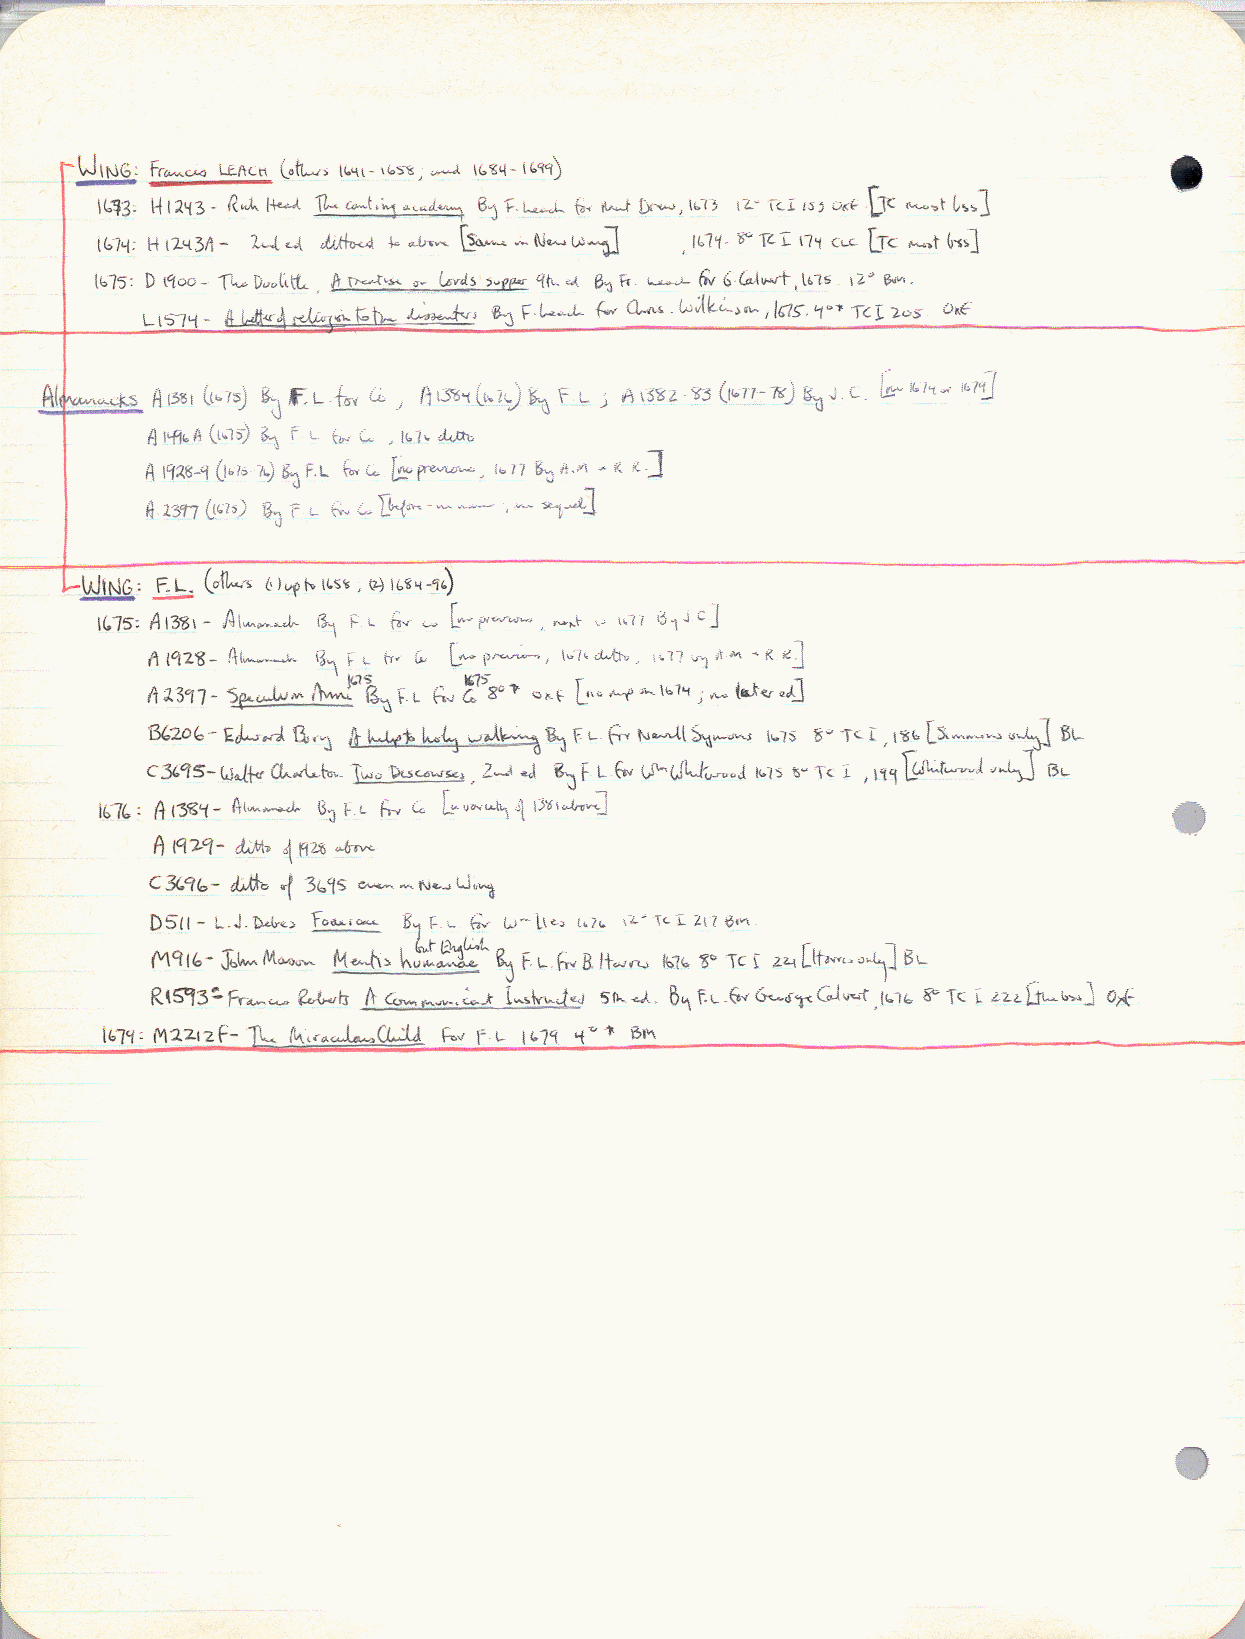 WING: Francis LEACH (others 1641-1658; and 1684-1699)
1673: H1243 - Rich Head The canting academy By F. Leach for Mat Drew, 1673 12° TC I 155 Oxf [TC most bss]
1674: H1243A - 2nd ed dittoed to above [Same in New Wing] , 1674. 8° TC I 174 CLC [TC most bss]
1675: D1900 - Tho Doolittle, A treatise on Lords supper 9th ed By Fr. Leach for G Calvert, 1675. 12° BM.
L1574 - A letter of religion to the dissenters By F. Leach for Chris. Wilkinson, 1675. 4°* TC I 205 Oxf
Almanacks A1381 (1675) By F.L. for Co, A1384 (1676) By F L; A1382-83 (1677-78) By J.C. [no 1674 or 1679]
A1496A (1675) By F L for Co, 1676 ditto
A1928-9 (1675-76) By F.L for Co [no previous, 1677 By A.M + R R.]
A2397 (1675) By F L for Co [before - no name, no sequel]
WING: F.L. (others (1) up to 1658, (2) 1684-96)
1675: A1381 - Almanach By F L for Co [no previous, next is 1677 By J C]
A1928 - Almanach By F L for Co [no previous, 1676 ditto, 1677 by A M + R R.]
A2397 - Speculum Anni 1675 By F.L for Co 1675 8°* Oxf [no imp in 1674; no later ed]
B6206 - Edward Bury A help to holy walking By F L for Nevill Symons 1675 8° TC I, 186 [Simmons only] BL
C3695 - Walter Charleton Two Discourses, 2nd ed By F L for Wm Whitwood 1675 8° TC I, 199 [Whitwood only] BL
1676: A1384 - Almanach By F.L for Co [a variety of 1381 above]
A1929 - ditto of 1928 above
C3696 - ditto of 3695 even in New Wing
D511 - L.J. Debes By F.L for W Iles 1676 12° TC I 217 BM.
M916 - John Mason Mentis humanae but English By F.L. for B. Harris 1676 8° TC I 221 [Harris only] BL
R1593 - Francis Roberts A Communicant Instructed 5th ed. By F.L. for George Calvert, 1676 8° TC I 222 [the bss] Oxf
1679: M2212F - The Miraculous Child For F L 1679 4°* BM